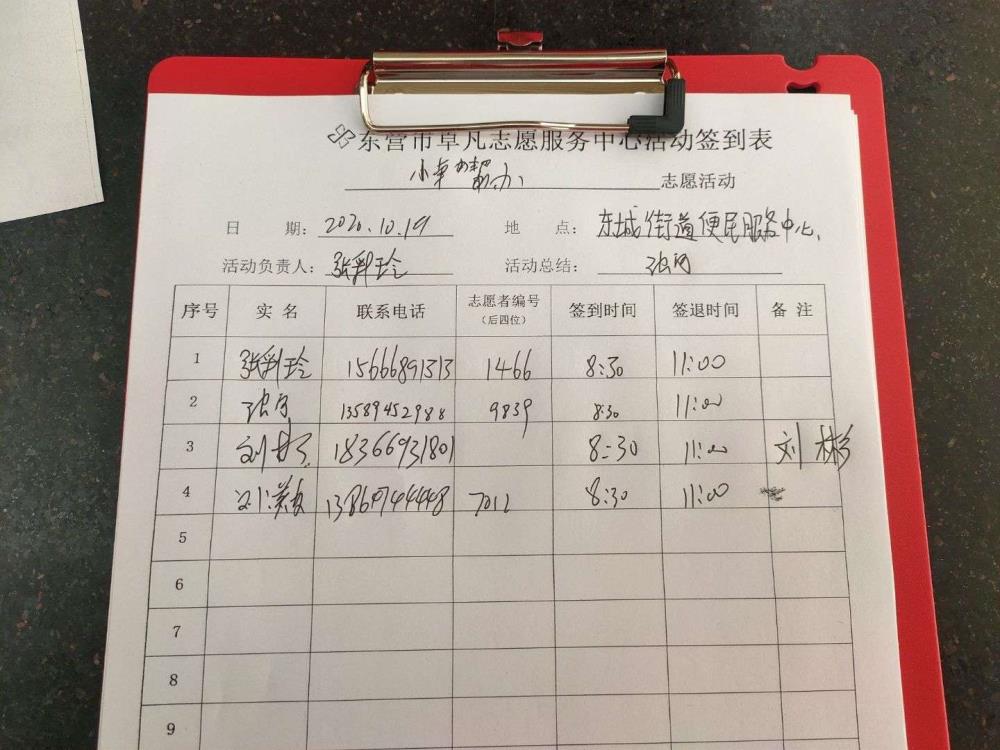 东营市卓凡志愿服务中心活动签到表
小卓帮办 志愿活动
日 期: 2020.10.19 地 点: 东城街道便民服务中心
活动负责人: 张彩玲 活动总结: 张月
序号 实 名 联系电话 志愿者编号 (后四位) 签到时间 签退时间 备 注
1 张彩玲 15666891313 1466 8:30 11:00
2 张月 13589452988 9839 8:30 11:00
3 刘彬 18366931801 8:30 11:00 刘彬
4 7012 8:30 11:00
5
6
7
8
9